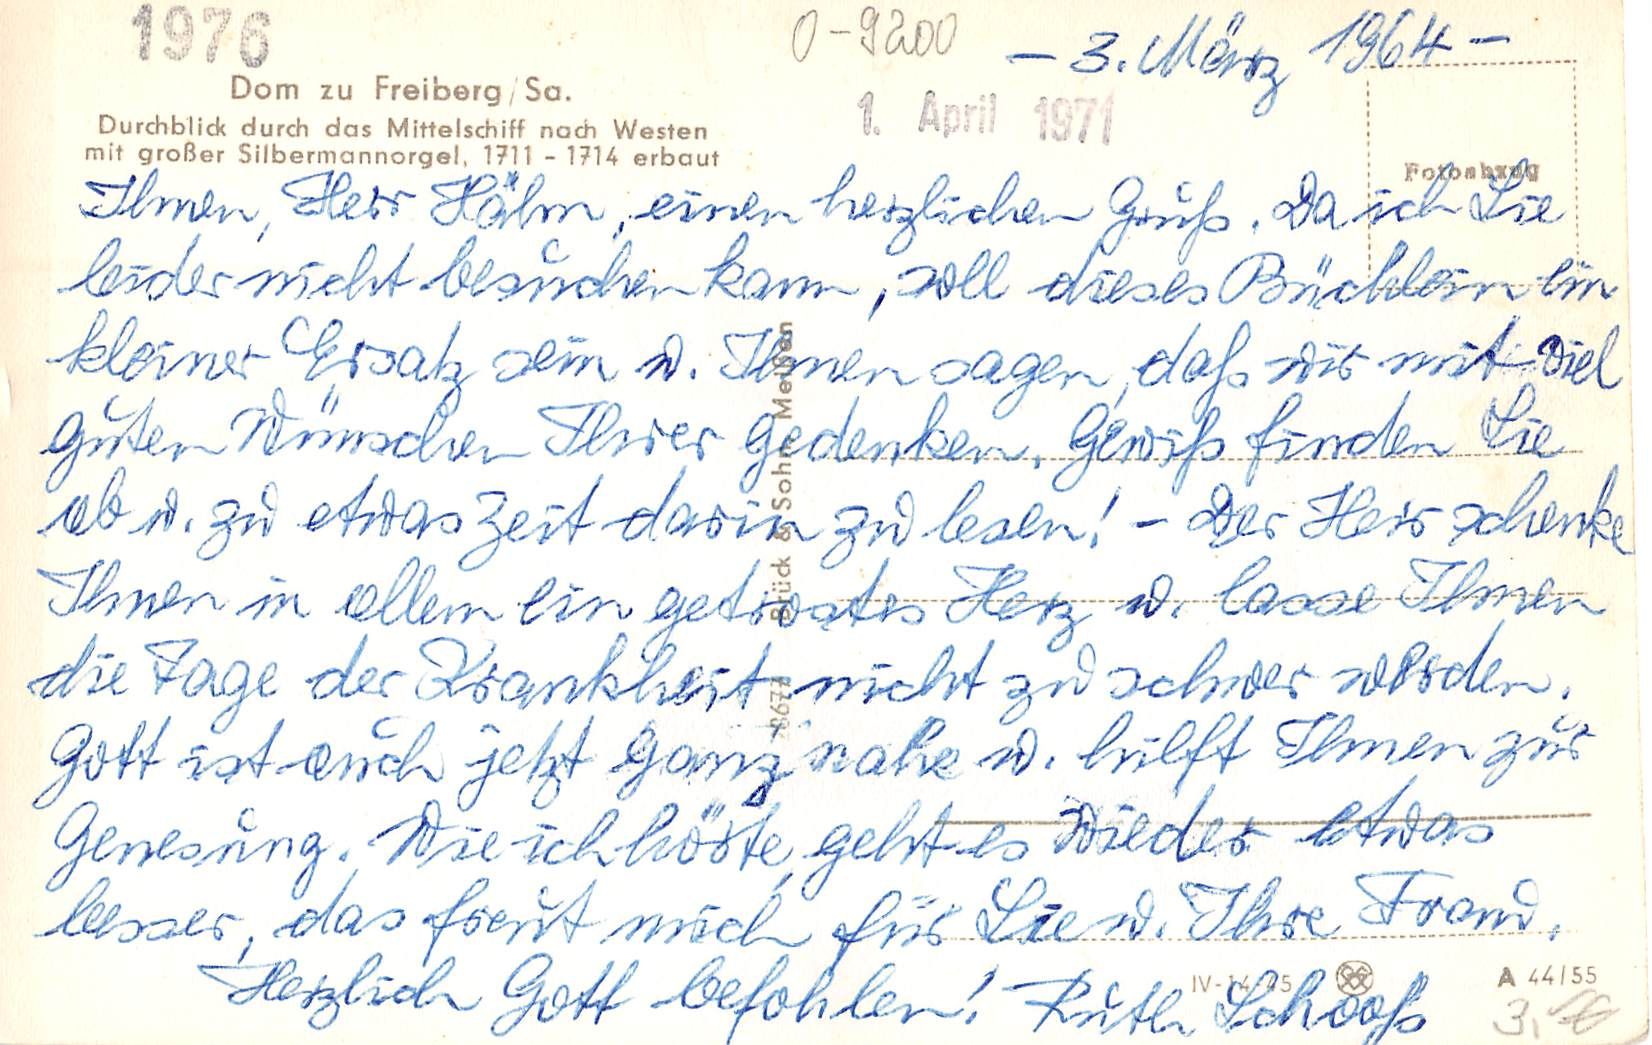 1976
O-9200
- 3. März 1964 -
Dom zu Freiberg/Sa.
1. April 1971
Durchblick durch das Mittelschiff nach Westen
mit großer Silbermannorgel, 1711 - 1714 erbaut
Fotoabzug
Ihnen, Herr Hähn, einen herzlichen Gruß. Da ich Sie
leider nicht besuchen kann, soll dieses Büchlein ein
kleiner Ersatz sein u. Ihnen sagen, daß wir mit viel
guten Wünschen Ihrer gedenken. Gewiß finden Sie
ab u. zu etwas Zeit darin zu lesen! - Der Herr schenke
Ihnen in allem ein getrostes Herz u. lasse Ihnen
die Tage der Krankheit nicht zu schwer werden.
Gott ist auch jetzt ganz nahe u. hilft Ihnen zur
Genesung. Wie ich hörte, geht es wieder etwas
besser, das freut mich für Sie u. Ihre Frau.
Herzlich Gott befohlen! Ruth Schooß
Brück & Sohn Meißen
IV-14-45
A 44/55